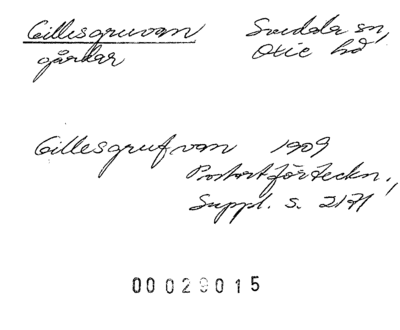 Gillesgruvan Svedala sn,
gårdar Oxie hd
Gillesgrufvan 1909
Postortförteckn.,
Suppl. s. 2171
00029015